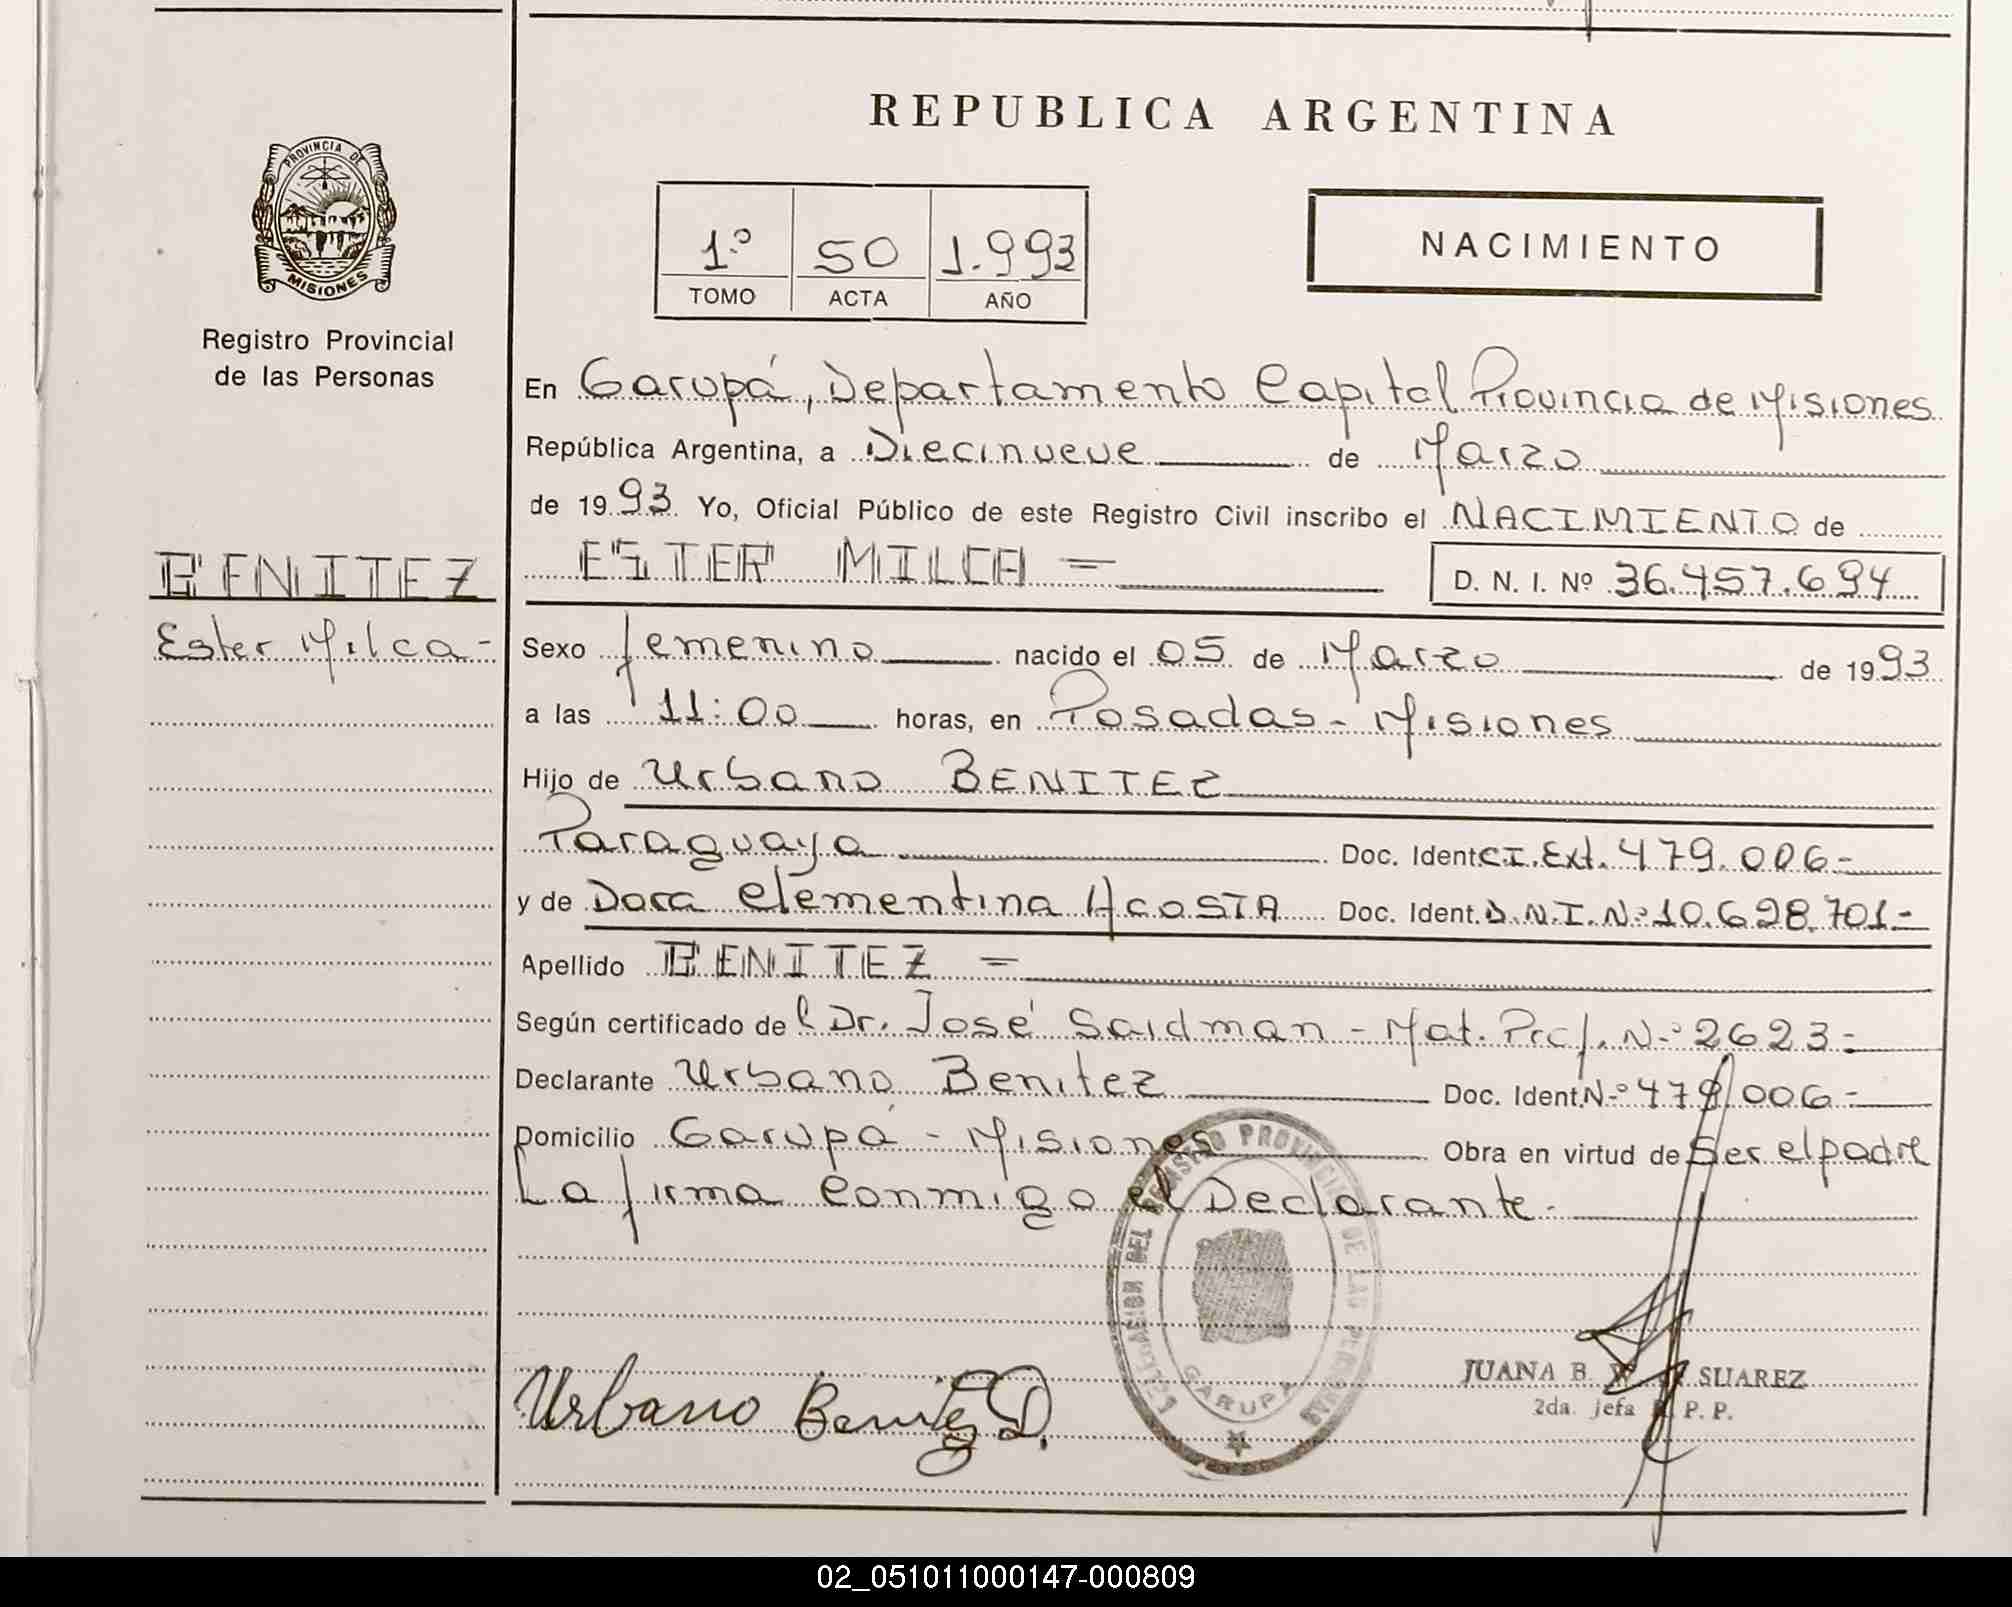 REPUBLICA ARGENTINA
PROVINCIA DE
MISIONES
Registro Provincial
de las Personas
1º 50 1.993
TOMO ACTA AÑO
NACIMIENTO
En Garupá, Departamento Capital Provincia de Misiones
República Argentina, a Diecinueve de Marzo
de 1993 Yo, Oficial Público de este Registro Civil inscribo el NACIMIENTO de
BENITEZ
Ester Milca-
ESTER MILCA =
D. N. I. Nº 36.457.694
Sexo femenino nacido el 05 de Marzo de 1993
a las 11:00 horas, en Posadas - Misiones
Hijo de Urbano BENITEZ
Paraguaya Doc. Ident. C.I. Ext. 479.006-
y de Dora Clementina ACOSTA Doc. Ident. D.N.I. Nº 10.628.701-
Apellido BENITEZ =
Según certificado del Dr. José Saidman - Mat. Prof. Nº 2623-
Declarante Urbano Benitez Doc. Ident. Nº 479.006-
Domicilio Garupá - Misiones Obra en virtud de Ser el padre
La firma conmigo el Declarante.
DELEGACION DEL REGISTRO PROVINCIAL DE LAS PERSONAS
GARUPA
Urbano Benitez D.
JUANA B. SUAREZ
2da. Jefa R. P. P.
02_051011000147-000809